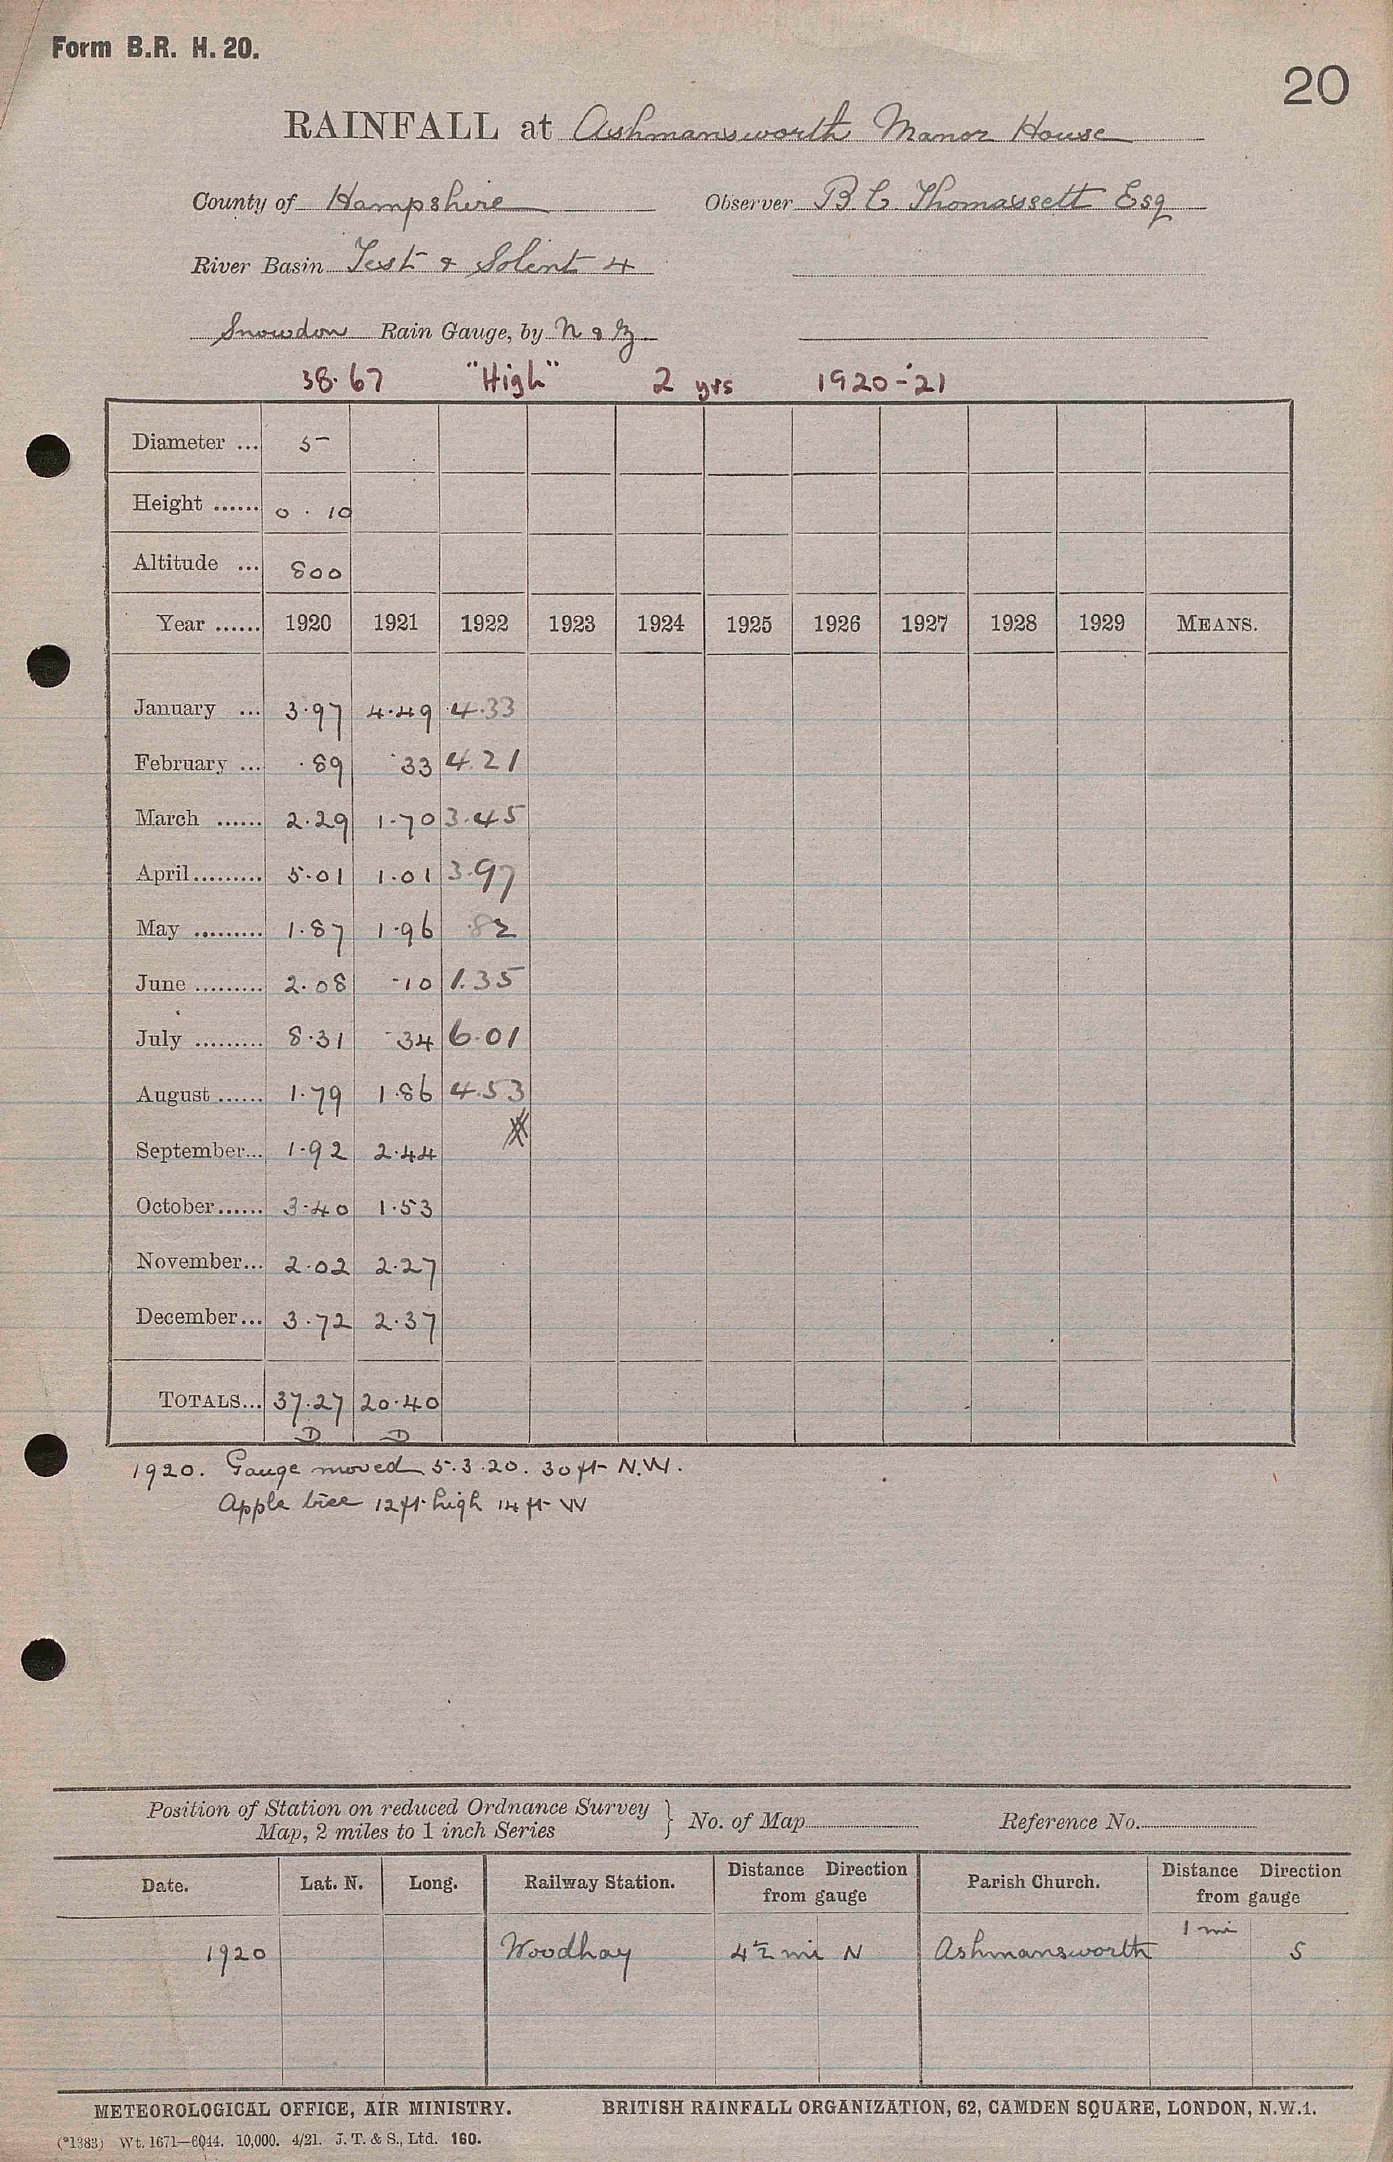 Form B.R. H. 20.
20
RAINFALL at Ashmansworth Manor House
County of Hampshire Observer B. C. Thomassett Esq
River Basin Test & Solent 4
Snowdon Rain Gauge, by N & Z
38.67 "High" 2 yrs 1920-'21
Diameter ... 5
Height ...... 0 . 10
Altitude ... 800
Year ...... 1920 1921 1922 1923 1924 1925 1926 1927 1928 1929 MEANS.
January ... 3.97 4.49 4.33
February ... .89 .33 4.21
March ...... 2.29 1.70 3.45
April......... 5.01 1.01 3.97
May ......... 1.87 1.96 .82
June ......... 2.08 .10 1.35
July ......... 8.31 .34 6.01
August ...... 1.79 1.86 4.53
September... 1.92 2.44
October...... 3.40 1.53
November... 2.02 2.27
December... 3.72 2.37
TOTALS... 37.27 20.40
D D
1920. Gauge moved 5.3.20. 30 ft N.W.
Apple tree 12 ft high 14 ft W
Position of Station on reduced Ordnance Survey
Map, 2 miles to 1 inch Series } No. of Map Reference No.
Date. Lat. N. Long. Railway Station. Distance Direction from gauge Parish Church. Distance Direction from gauge
1920 Woodhay 4½ mi N Ashmansworth 1 mi S
METEOROLOGICAL OFFICE, AIR MINISTRY. BRITISH RAINFALL ORGANIZATION, 62, CAMDEN SQUARE, LONDON, N.W.1.
(*1383) Wt. 1671—6044. 10,000. 4/21. J. T. & S., Ltd. 160.